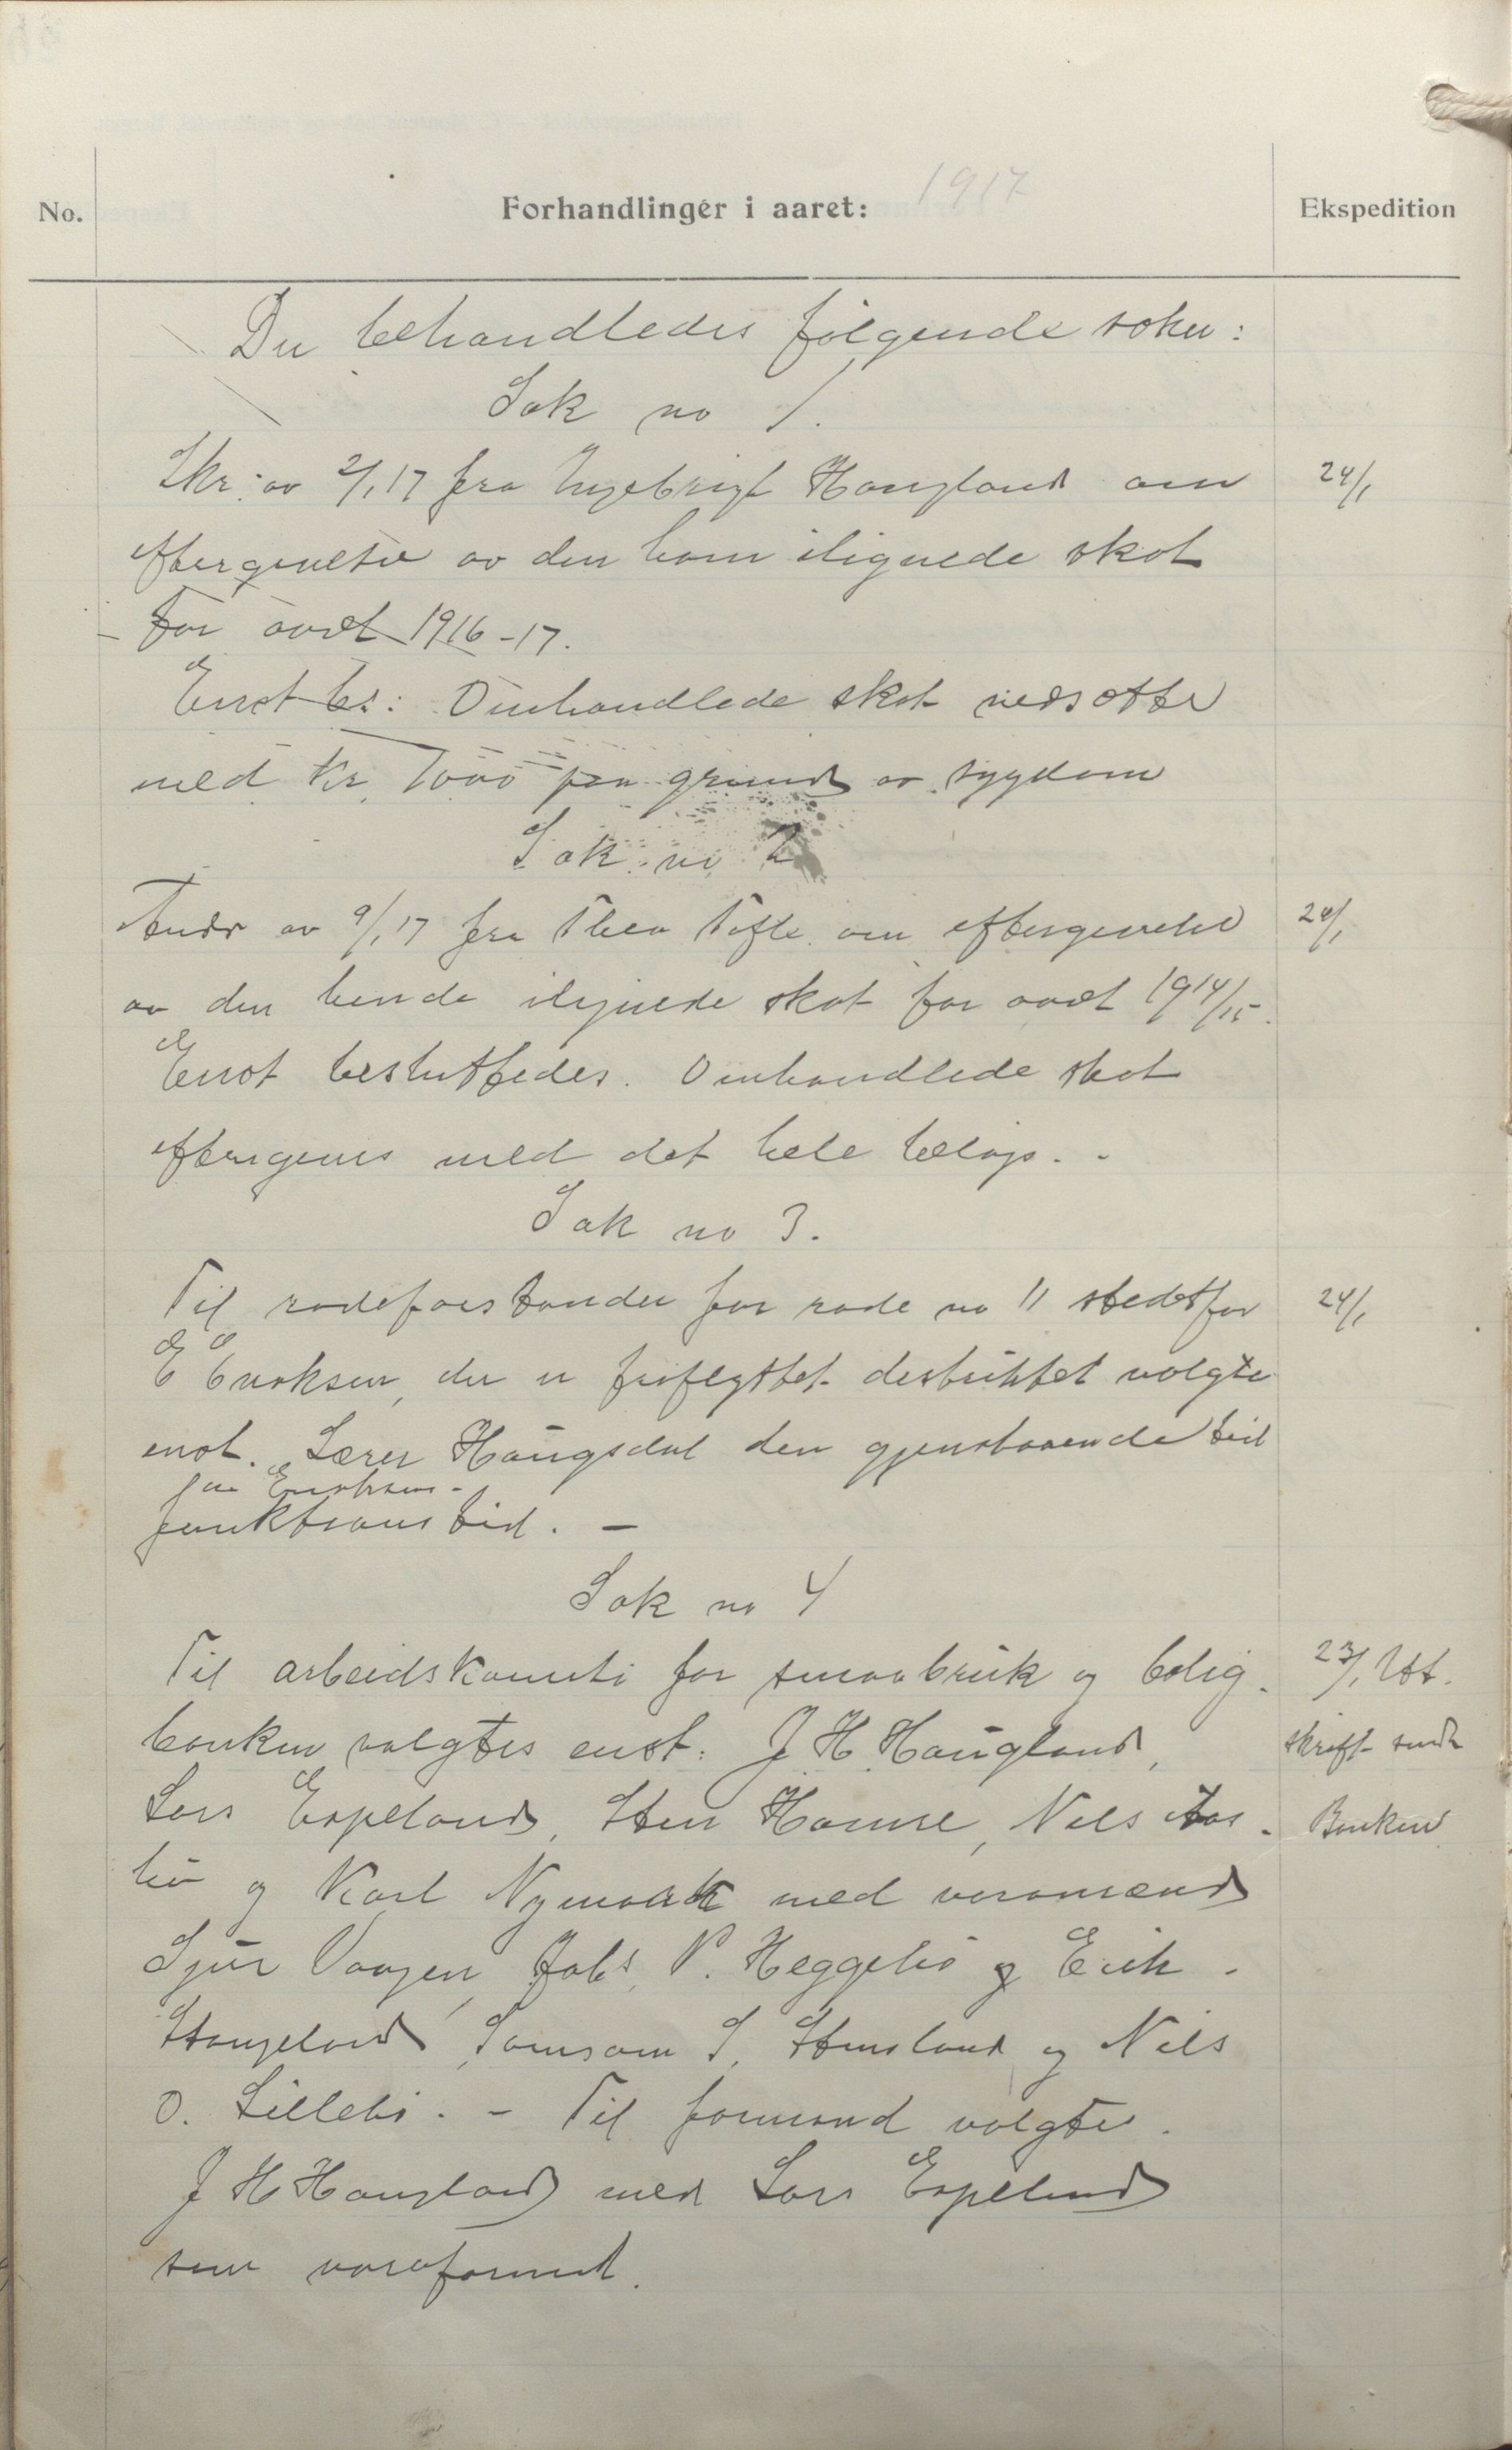 No.
Forhandlinger i aaret: 1917
Ekspedition
Der behandledes følgende saker:
Sak no 1.
Skr. av 2/1 17 fra Ingebrigt Haugland om
24/1
eftergivelse av den ham ilignede skat
for aaret 1916-17.
Enst bes: Omhandlede skat nedsættes
med kr. 1000 paa grund av sygdom
Sak no 2
Andr av 9/1 17 fra Thea Tofte om eftergivelse
24/1
av den hende ilignede skat for aaret 1914/15.
Enst besluttedes. Omhandlede skat
eftergives med det hele beløp. -
Sak no 3.
Til rodeforstander for rode no 11 istedetfor
24/1
E Enoksen, der er fraflyttet distriktet valgtes
enst. Lærer Haugsdal den gjenstaaende tid
fra Enoksens
funktionstid. -
Sak no 4
Til arbeidskomite for smaabruk og bolig-
23/1 Uts.
banken valgtes enst: J. H. Haugland,
skrift sendt
Lars Espeland, Sten Hamre, Nils Aas-
Banken
bø og Karl Nymark med varamænd
Sjur Vaagen, Jobs P. Heggebø og Erik
Stangeland, Samson S. Stensland og Nils
O. Lillebø. - Til formand valgtes
J H Haugland med Lars Espeland
som varaformd.